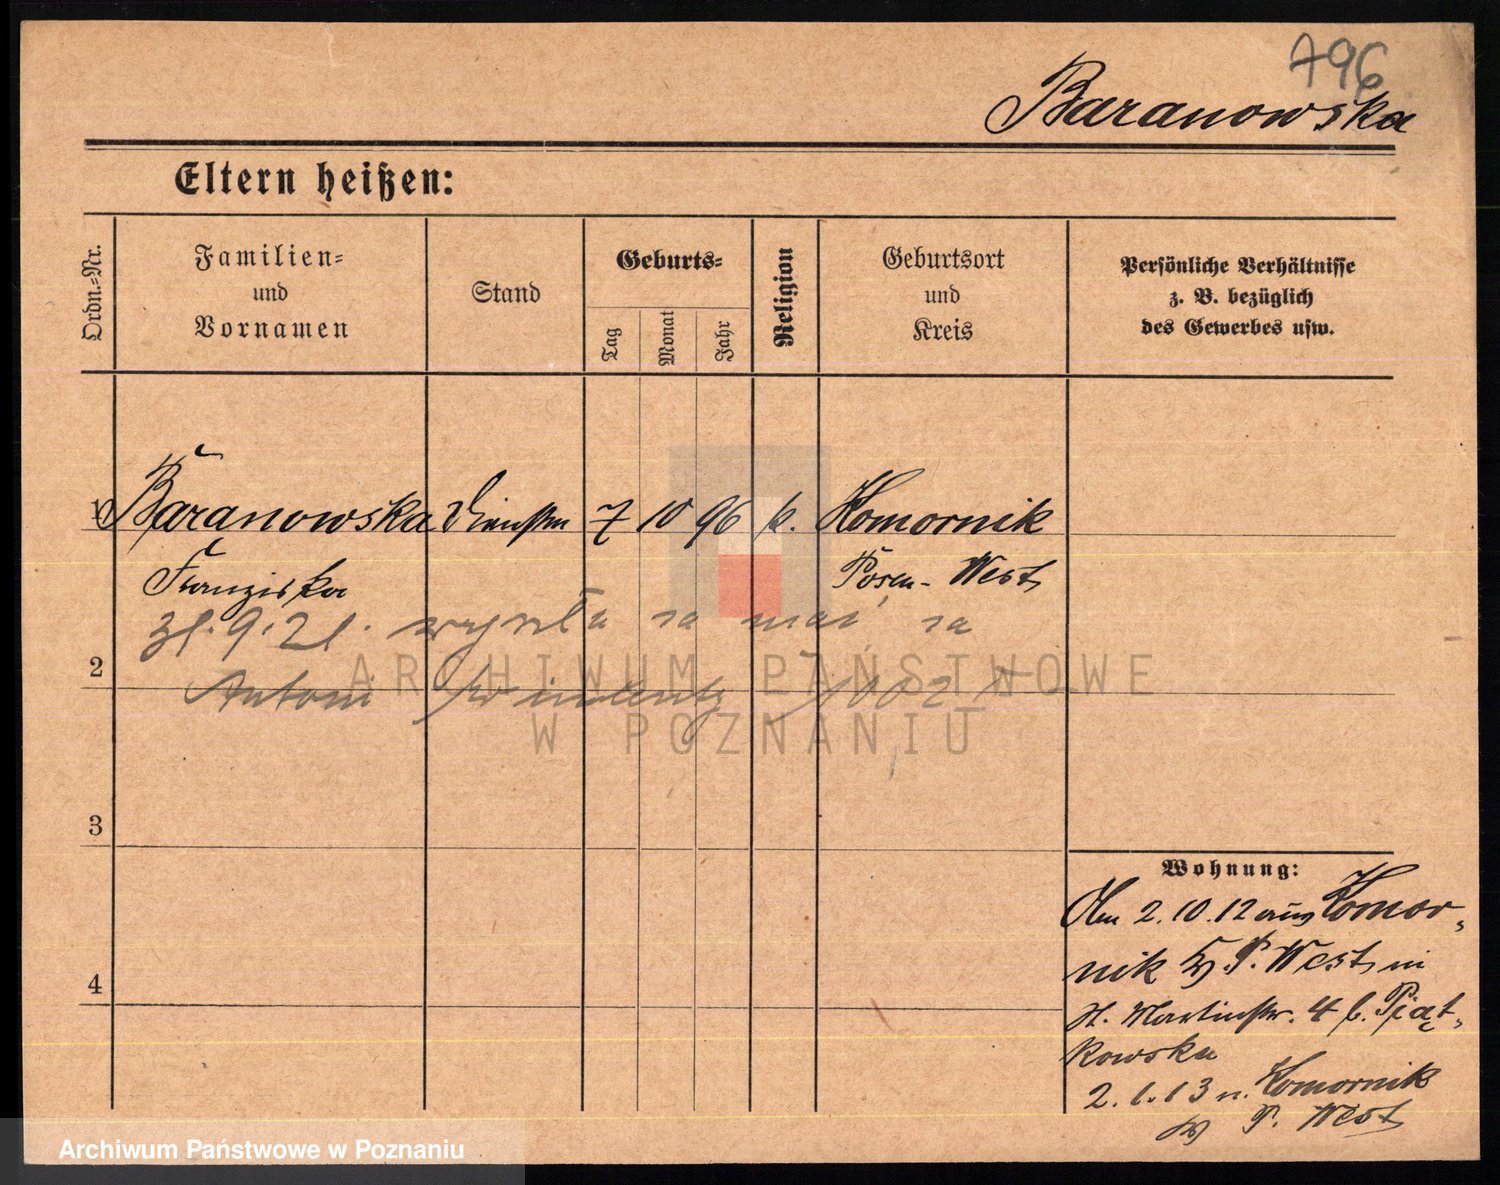 796
Baranowska
Eltern heißen:
Ordn.-Nr.
Familien-
und
Vornamen
Stand
Geburts-
Tag
Monat
Jahr
Religion
Geburtsort
und
Kreis
Persönliche Verhältnisse
z. B. bezüglich
des Gewerbes usw.
1 Baranowska Dienstm 7 10 96 k. Komornik
Franziska Posen - West
31.9.21. wyszła za mąż za
2
Antoni
3
4
Wohnung:
Am 2.10.12 aus Komor-
nik Kr. P. West in
St. Martinstr. 4 b. Piąt-
kowska
2.1.13 n. Komornik
Kr P. West
ARCHIWUM PAŃSTWOWE
W POZNANIU
Archiwum Państwowe w Poznaniu